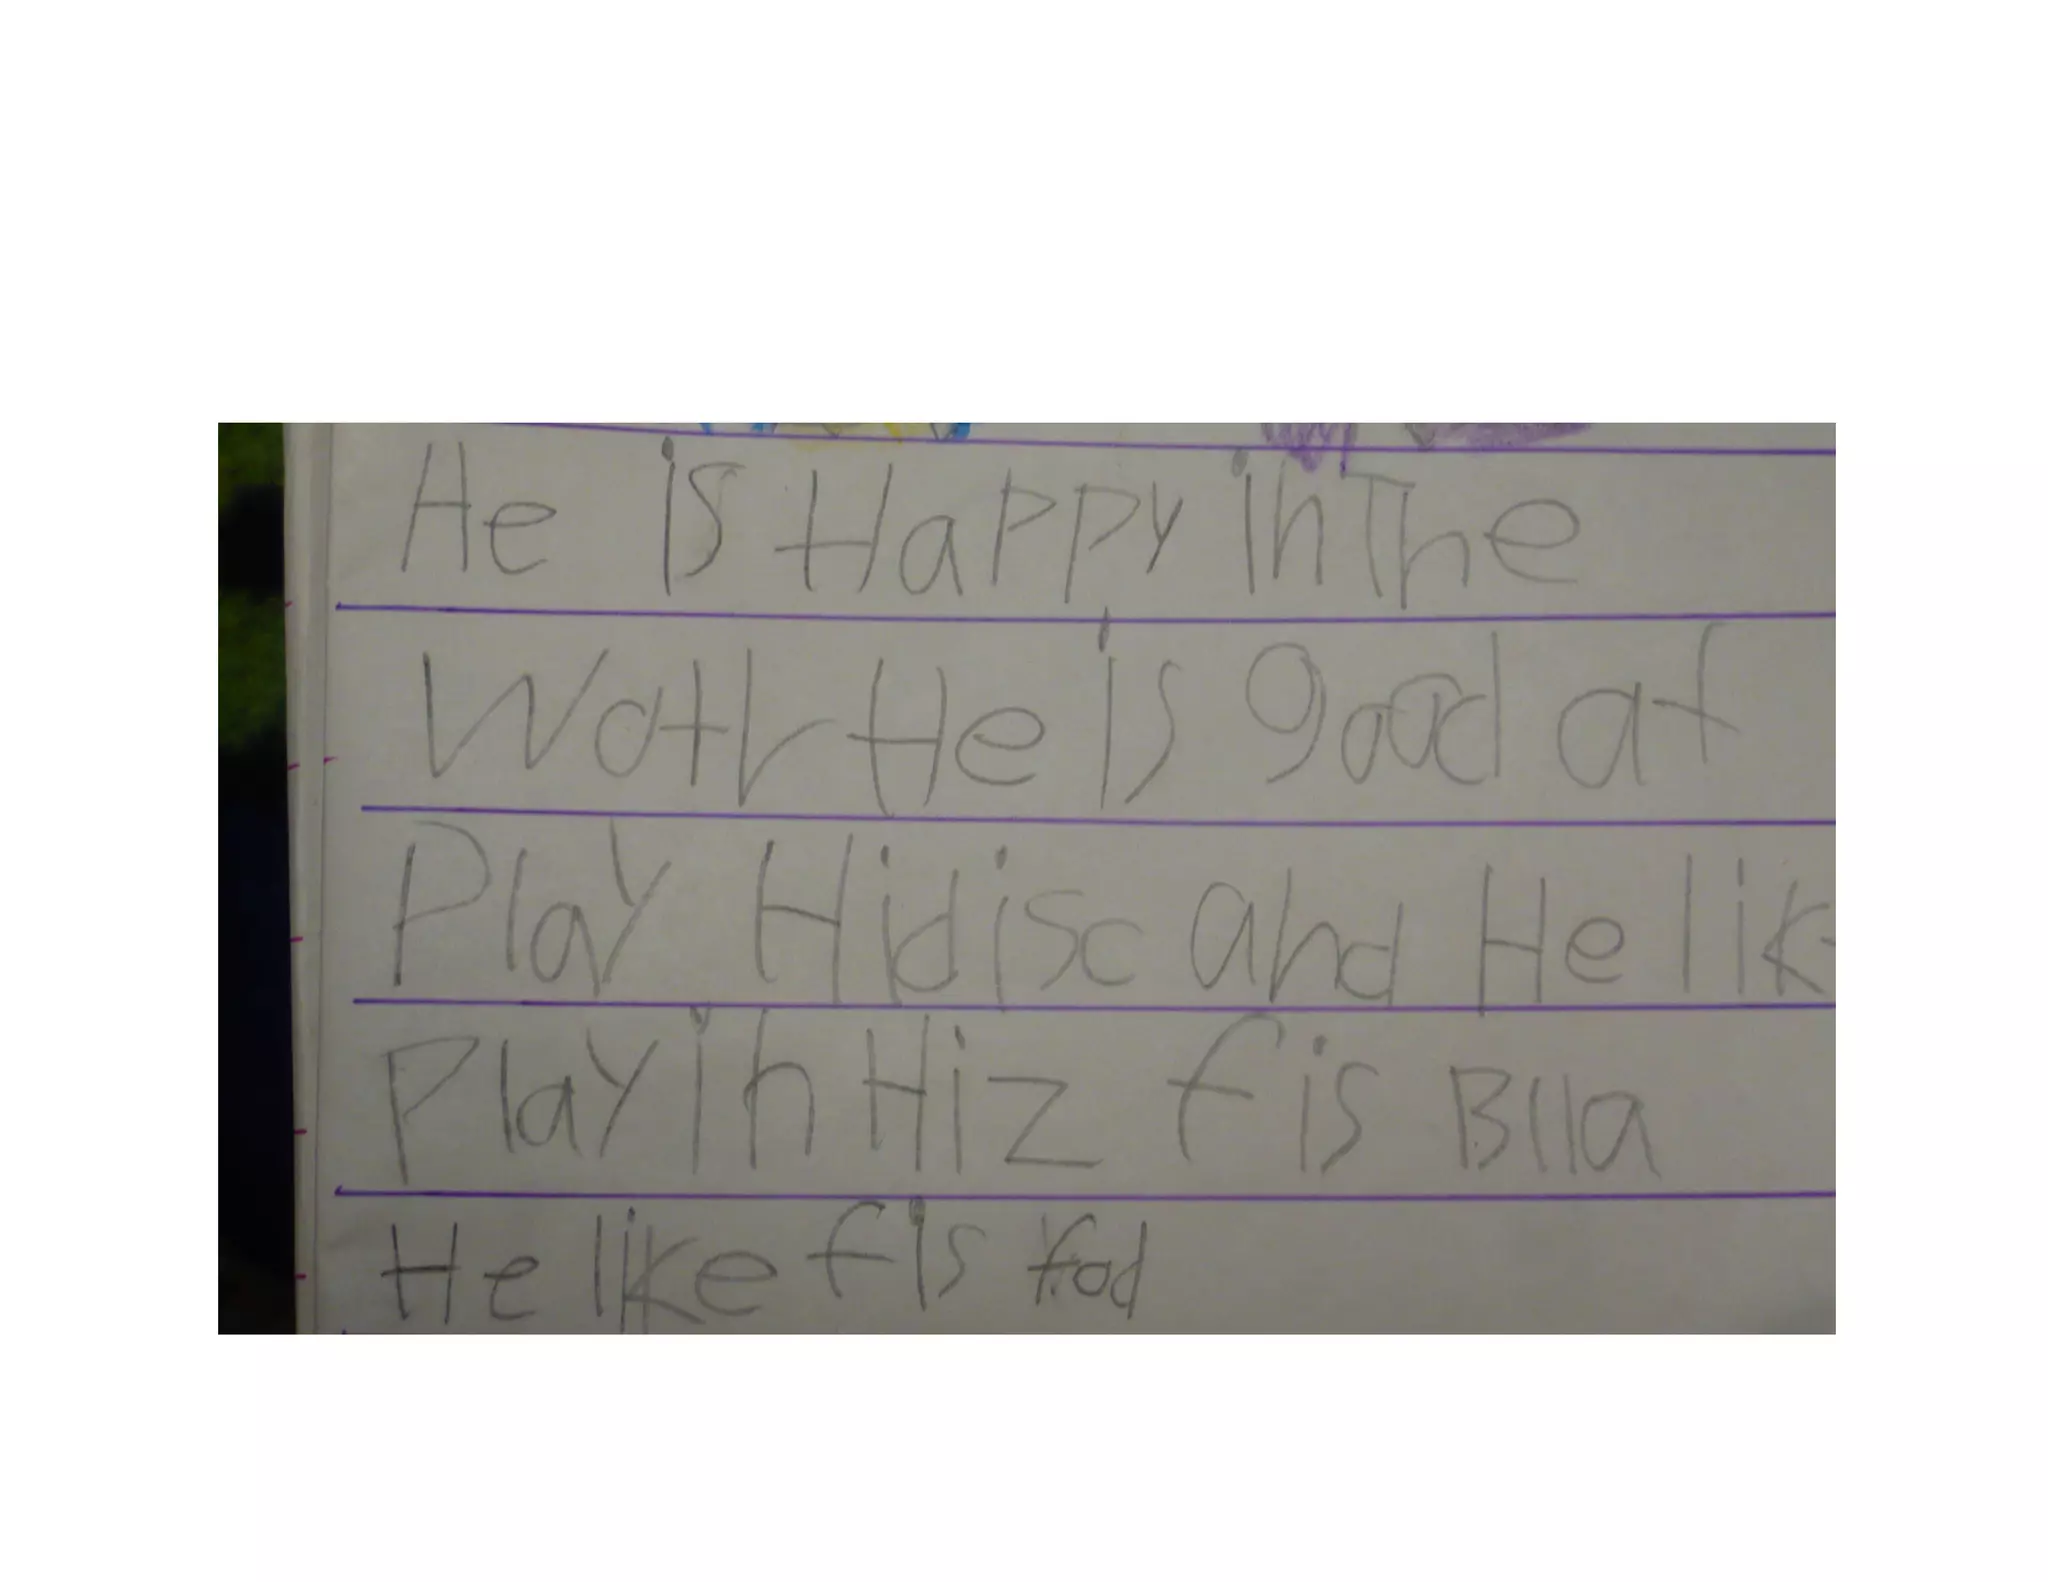 He is Happy in The
Watr He is good at
Play Hidisc and He lik
Play in Hiz fis Blla
He like fis fod